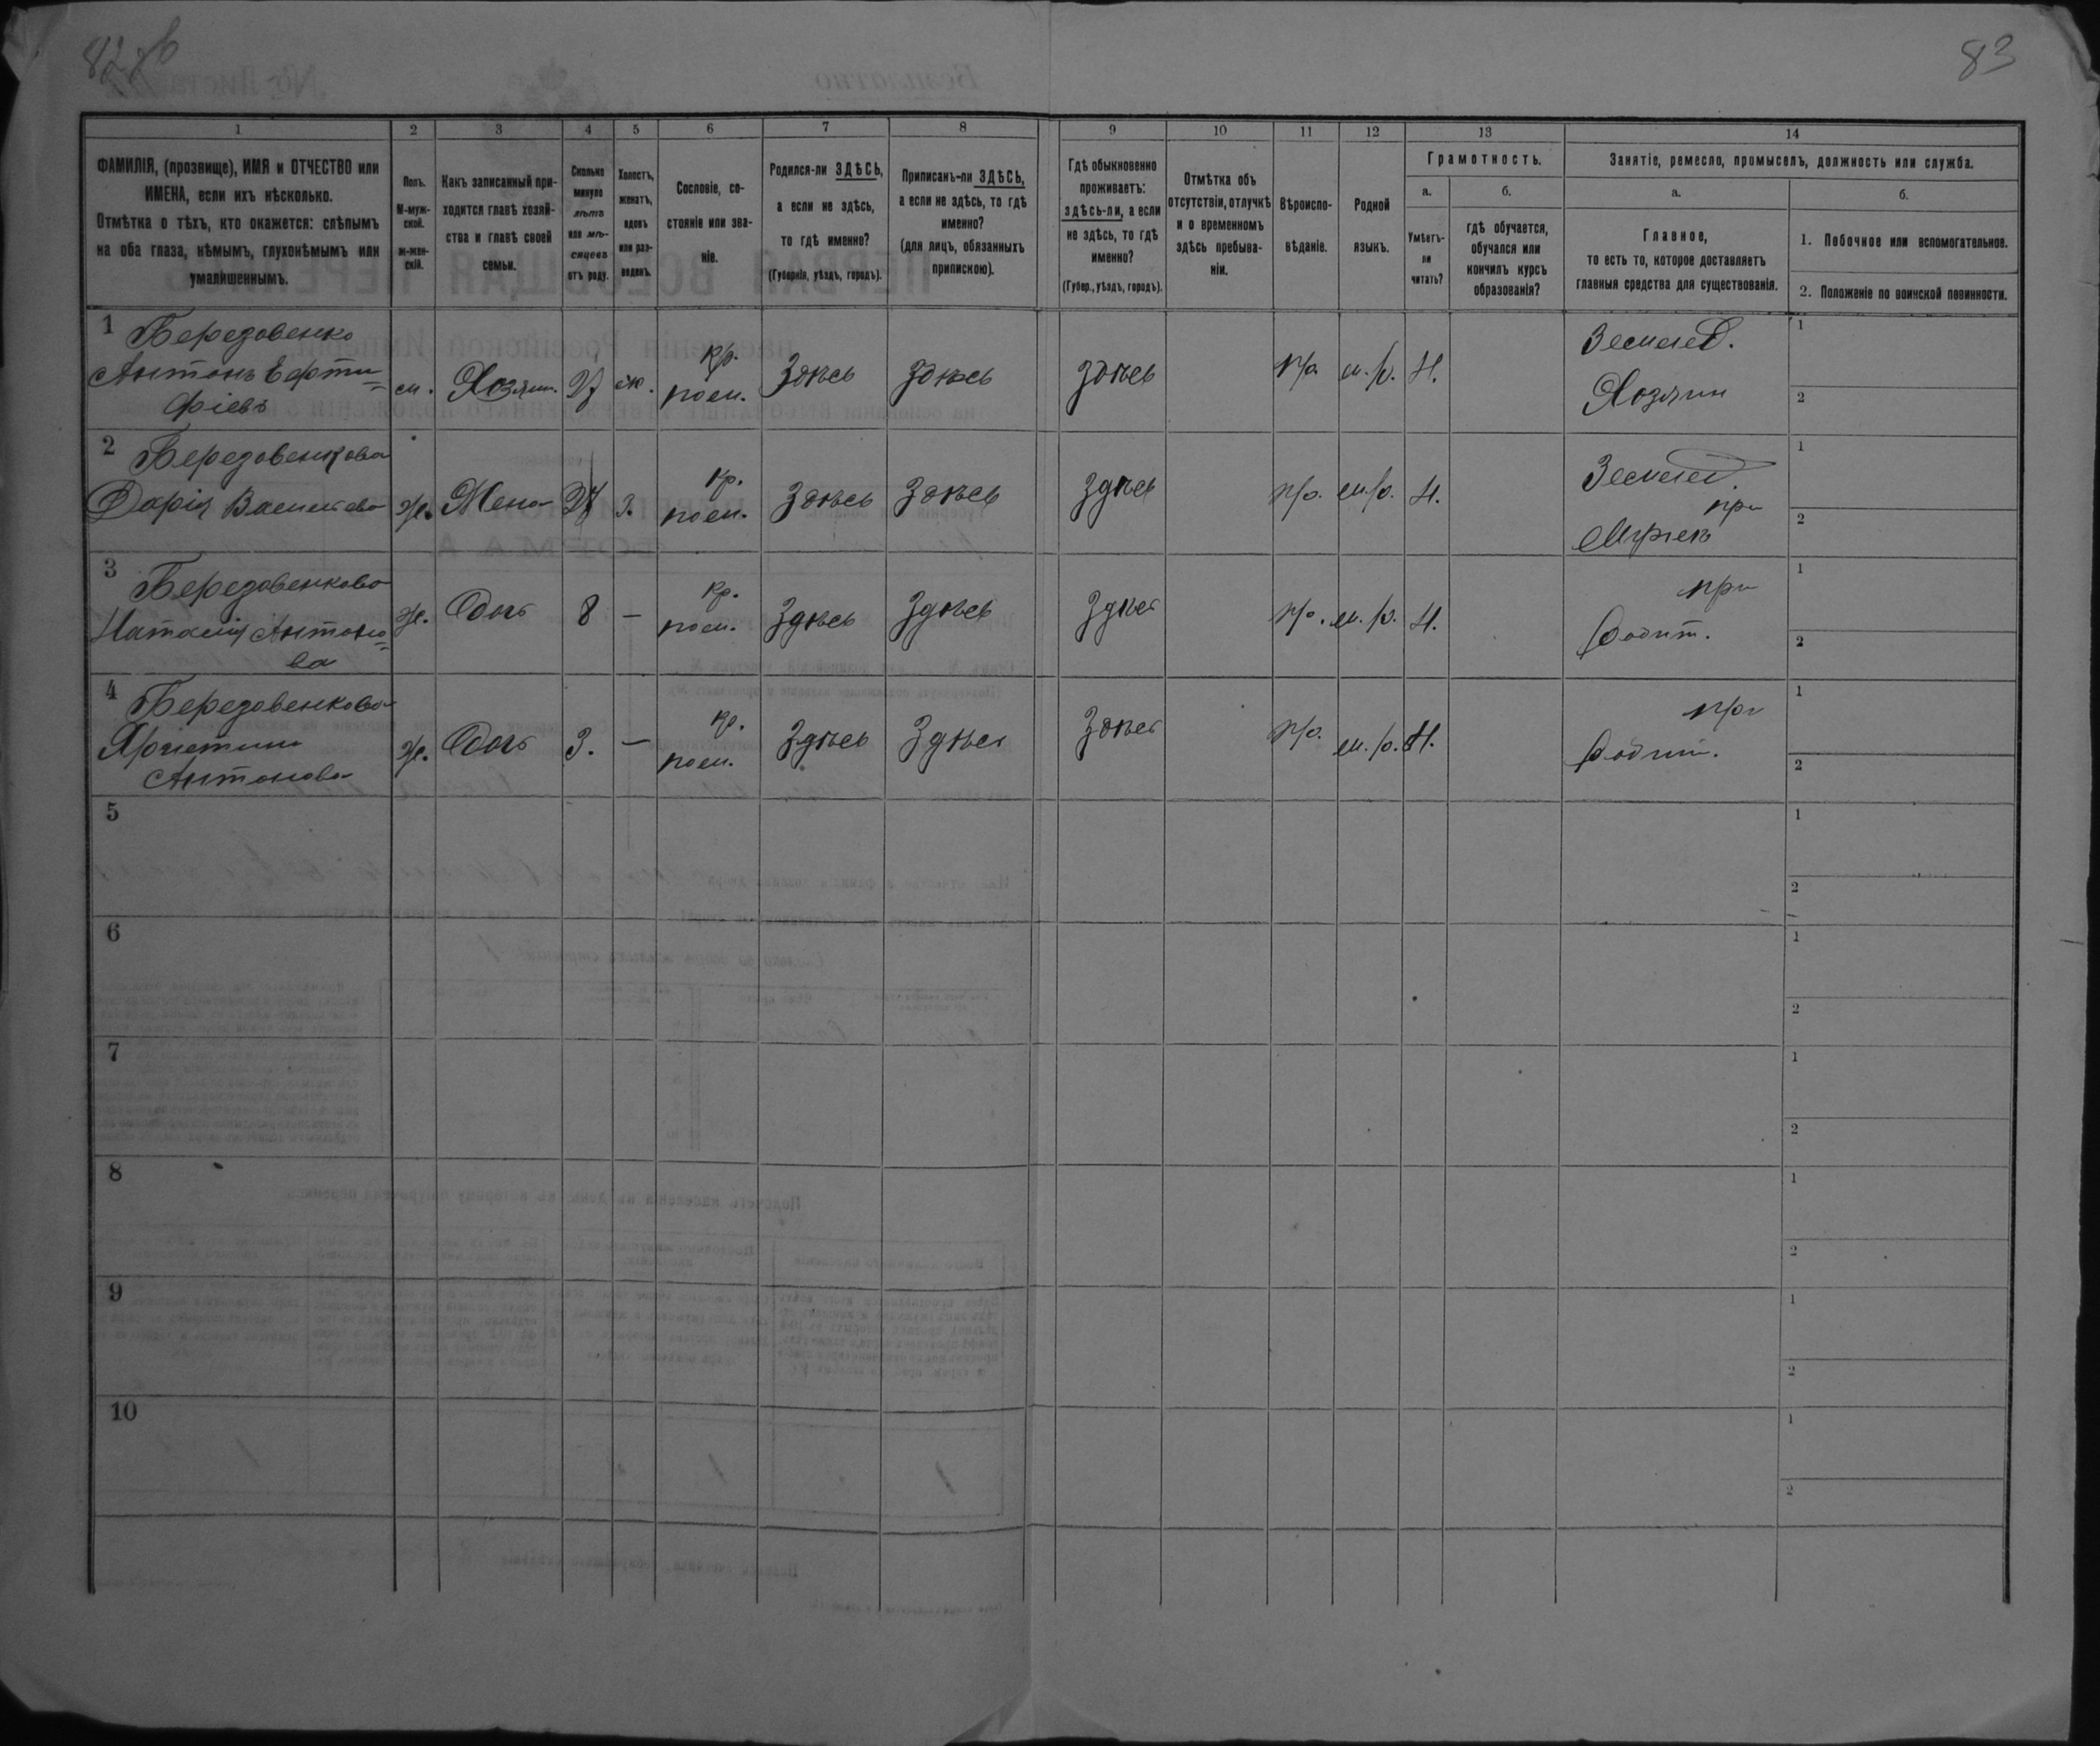 83
1
2
3
4
5
6
7
8
9
10
11
12
13
14
ФАМИЛІЯ, (прозвище), ИМЯ и ОТЧЕСТВО или
ИМЕНА, если ихъ нѣсколько.
Отмѣтка о тѣхъ, кто окажется: слѣпымъ
на оба глаза, нѣмымъ, глухонѣмымъ или
умалишеннымъ.
Полъ.
М-муж-
ской.
ж-жен-
скій.
Какъ записанный при-
ходится главѣ хозяй-
ства и главѣ своей
семьи.
Сколько
минуло
лѣтъ
или мѣ-
сяцевъ
отъ роду.
Холостъ,
женатъ,
вдовъ
или раз-
веденъ.
Сословіе, со-
стояніе или зва-
ніе.
Родился-ли ЗДѢСЬ,
а если не здѣсь,
то гдѣ именно?
(Губернія, уѣздъ, городъ).
Приписанъ-ли ЗДѢСЬ,
а если не здѣсь, то гдѣ
именно?
(для лицъ, обязанныхъ
припискою).
Гдѣ обыкновенно
проживаетъ:
здѣсь-ли, а если
не здѣсь, то гдѣ
именно?
(Губер., уѣздъ, городъ).
Отмѣтка объ
отсутствіи, отлучкѣ
и о временномъ
здѣсь пребыва-
ніи.
Вѣроиспо-
вѣданіе.
Родной
языкъ.
Грамотность.
а.
Умѣетъ-
ли
читать?
б.
гдѣ обучается,
обучался или
кончилъ курсъ
образованія?
Занятіе, ремесло, промыселъ, должность или служба.
а.
Главное,
то есть то, которое доставляетъ
главныя средства для существованія.
б.
1. Побочное или вспомогательное.
2. Положеніе по воинской повинности.
1 Березовенко
Антонъ Евти=
фіевъ
м. Хозяин. 27 ж. кр. Здѣсь Здѣсь здѣсь м. р. Н. Землед.
Хозяин
1
2
2 Березовенкова
Дарія Василева
ж. Жена 27 З. кр. Здѣсь Здѣсь здѣсь м. р. Н. Землед.
при
Мужѣ
1
2
3 Березовенкова
Наталія Антоно=
ва
ж. Дочь 8 — кр. Здѣсь Здѣсь здѣсь м. р. Н. при
родит.
1
2
4 Березовенкова
Антонова
ж. Дочь 3. — кр. Здѣсь Здѣсь здѣсь м. р. Н. при
родит.
1
2
5
1
2
6
1
2
7
1
2
8
1
2
9
1
2
10
1
2